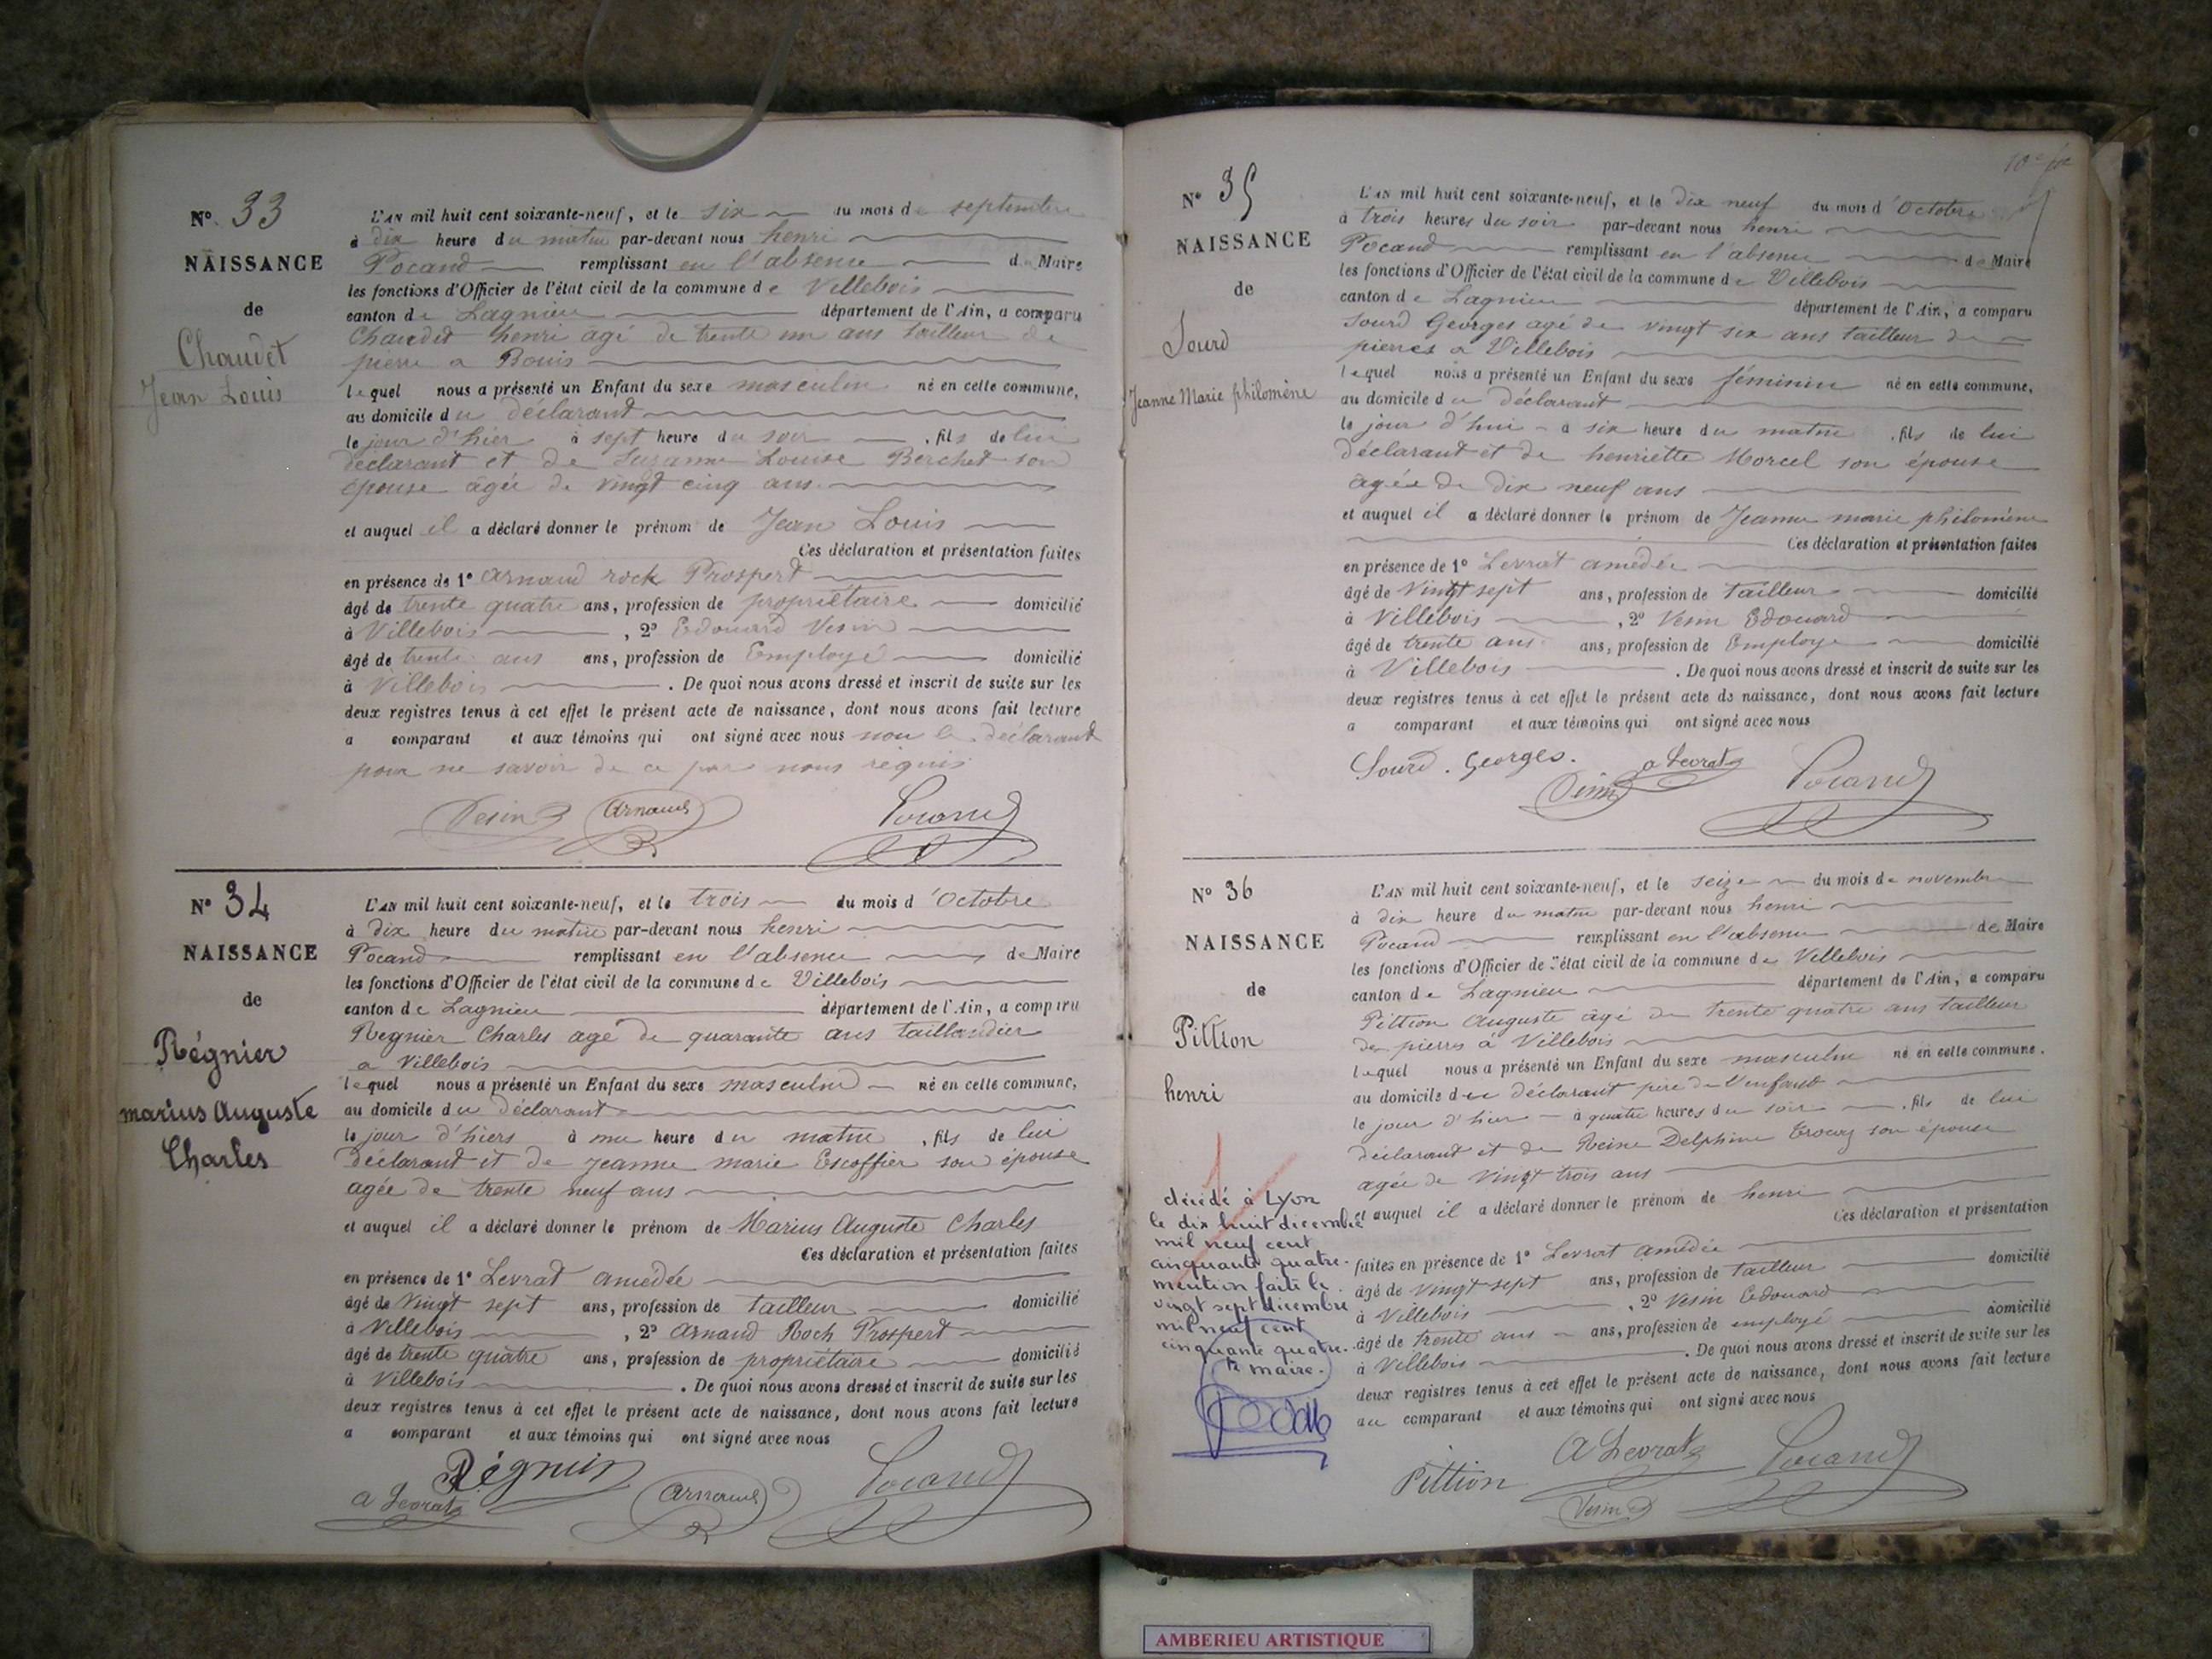 N° 33
NAISSANCE
de
Chaudet
Jean Louis
L'AN mil huit cent soixante-neuf, et le six du mois de septembre
à dix heure du matin par-devant nous henri
Pocand remplissant en l'absence du Maire
les fonctions d'Officier de l'état civil de la commune de Villebois
canton de Lagnieu département de l'Ain, a comparu
Chaudet henri agé de trente un ans tailleur de
pierre a Bouis
lequel nous a présenté un Enfant du sexe masculin né en cette commune,
au domicile du déclarant
le jour d'hier à sept heure du soir, fils de lui
déclarant et de Suzanne Louise Berchet son
épouse âgée de vingt cinq ans
et auquel il a déclaré donner le prénom de Jean Louis
Ces déclaration et présentation faites
en présence de 1° Arnaud rock Prospert
âgé de trente quatre ans, profession de propriétaire domicilié
à Villebois, 2° Edouard Vesin
âgé de trente ans ans, profession de Employé domicilié
à Villebois. De quoi nous avons dressé et inscrit de suite sur les
deux registres tenus à cet effet le présent acte de naissance, dont nous avons fait lecture
a comparant et aux témoins qui ont signé avec nous non le déclarant
pour ne savoir de ce par nous requis
Vesin Arnaud Pocand
N° 34
NAISSANCE
de
Régnier
marius Auguste
Charles
L'AN mil huit cent soixante-neuf, et le trois du mois d'Octobre
à dix heure du matin par-devant nous henri
Pocand remplissant en l'absence de Maire
les fonctions d'Officier de l'état civil de la commune de Villebois
canton de Lagnieu département de l'Ain, a comparu
Regnier Charles agé de quarante ans taillandier
a Villebois
lequel nous a présenté un Enfant du sexe masculin né en cette commune,
au domicile du déclarant
le jour d'hiers à une heure du matin, fils de lui
déclarant et de jeanne marie Escoffier son épouse
agée de trente neuf ans
et auquel il a déclaré donner le prénom de Marius Auguste Charles
Ces déclaration et présentation faites
en présence de 1° Levrat amédée
âgé de Vingt sept ans, profession de tailleur domicilié
à Villebois, 2° Arnaud Roch Prospert
âgé de trente quatre ans, profession de propriétaire domicilié
à Villebois. De quoi nous avons dressé et inscrit de suite sur les
deux registres tenus à cet effet le présent acte de naissance, dont nous avons fait lecture
a comparant et aux témoins qui ont signé avec nous
Régnier
a Levrat Arnaud Pocand
N° 35
NAISSANCE
de
Sourd
Jeanne Marie philomène
L'AN mil huit cent soixante-neuf, et le dix neuf du mois d'Octobre
à trois heures du soir par-devant nous henri
Pocand remplissant en l'absence de Maire
les fonctions d'Officier de l'état civil de la commune de Villebois
canton de Lagnieu département de l'Ain, a comparu
Sourd Georges agé de vingt six ans tailleur de
pierres a Villebois
lequel nous a présenté un Enfant du sexe féminin né en cette commune,
au domicile du déclarant
le jour d'hui à six heure du matin, fils de lui
déclarant et de henriette Morcel son épouse
âgée de dix neuf ans
et auquel il a déclaré donner le prénom de Jeanne marie philomène
Ces déclaration et présentation faites
en présence de 1° Levrat amédée
âgé de Vingt sept ans, profession de tailleur domicilié
à Villebois, 2° Vesin Edouard
âgé de trente ans ans, profession de Employé domicilié
à Villebois. De quoi nous avons dressé et inscrit de suite sur les
deux registres tenus à cet effet le présent acte de naissance, dont nous avons fait lecture
a comparant et aux témoins qui ont signé avec nous
Sourd . Georges. a Levrat
Vesin Pocand
N° 36
NAISSANCE
de
Pittion
henri
décédé à Lyon
le dix huit décembre
mil neuf cent
cinquante quatre.
mention faite le
vingt sept décembre
mil neuf cent
cinquante quatre.
le maire.
L'AN mil huit cent soixante-neuf, et le seize du mois de novembre
à dix heure du matin par-devant nous henri
Pocand remplissant en l'absence de Maire
les fonctions d'Officier de l'état civil de la commune de Villebois
canton de Lagnieu département de l'Ain, a comparu
Pittion Auguste âgé de trente quatre ans tailleur
de pierres à Villebois
lequel nous a présenté un Enfant du sexe masculin né en cette commune.
au domicile du déclarant père de l'enfant
le jour d'hier à quatre heures du soir, fils de lui
déclarant et de Reine Delphine son épouse
agée de vingt trois ans
et auquel il a déclaré donner le prénom de henri
Ces déclaration et présentation
faites en présence de 1° Levrat Amédée
âgé de vingt sept ans, profession de tailleur domicilié
à Villebois, 2° Vesin Edouard
âgé de trente ans ans, profession de employé domicilié
à Villebois. De quoi nous avons dressé et inscrit de suite sur les
deux registres tenus à cet effet le présent acte de naissance, dont nous avons fait lecture
au comparant et aux témoins qui ont signé avec nous
Pittion A Levrat Pocand
Vesin
AMBERIEU ARTISTIQUE